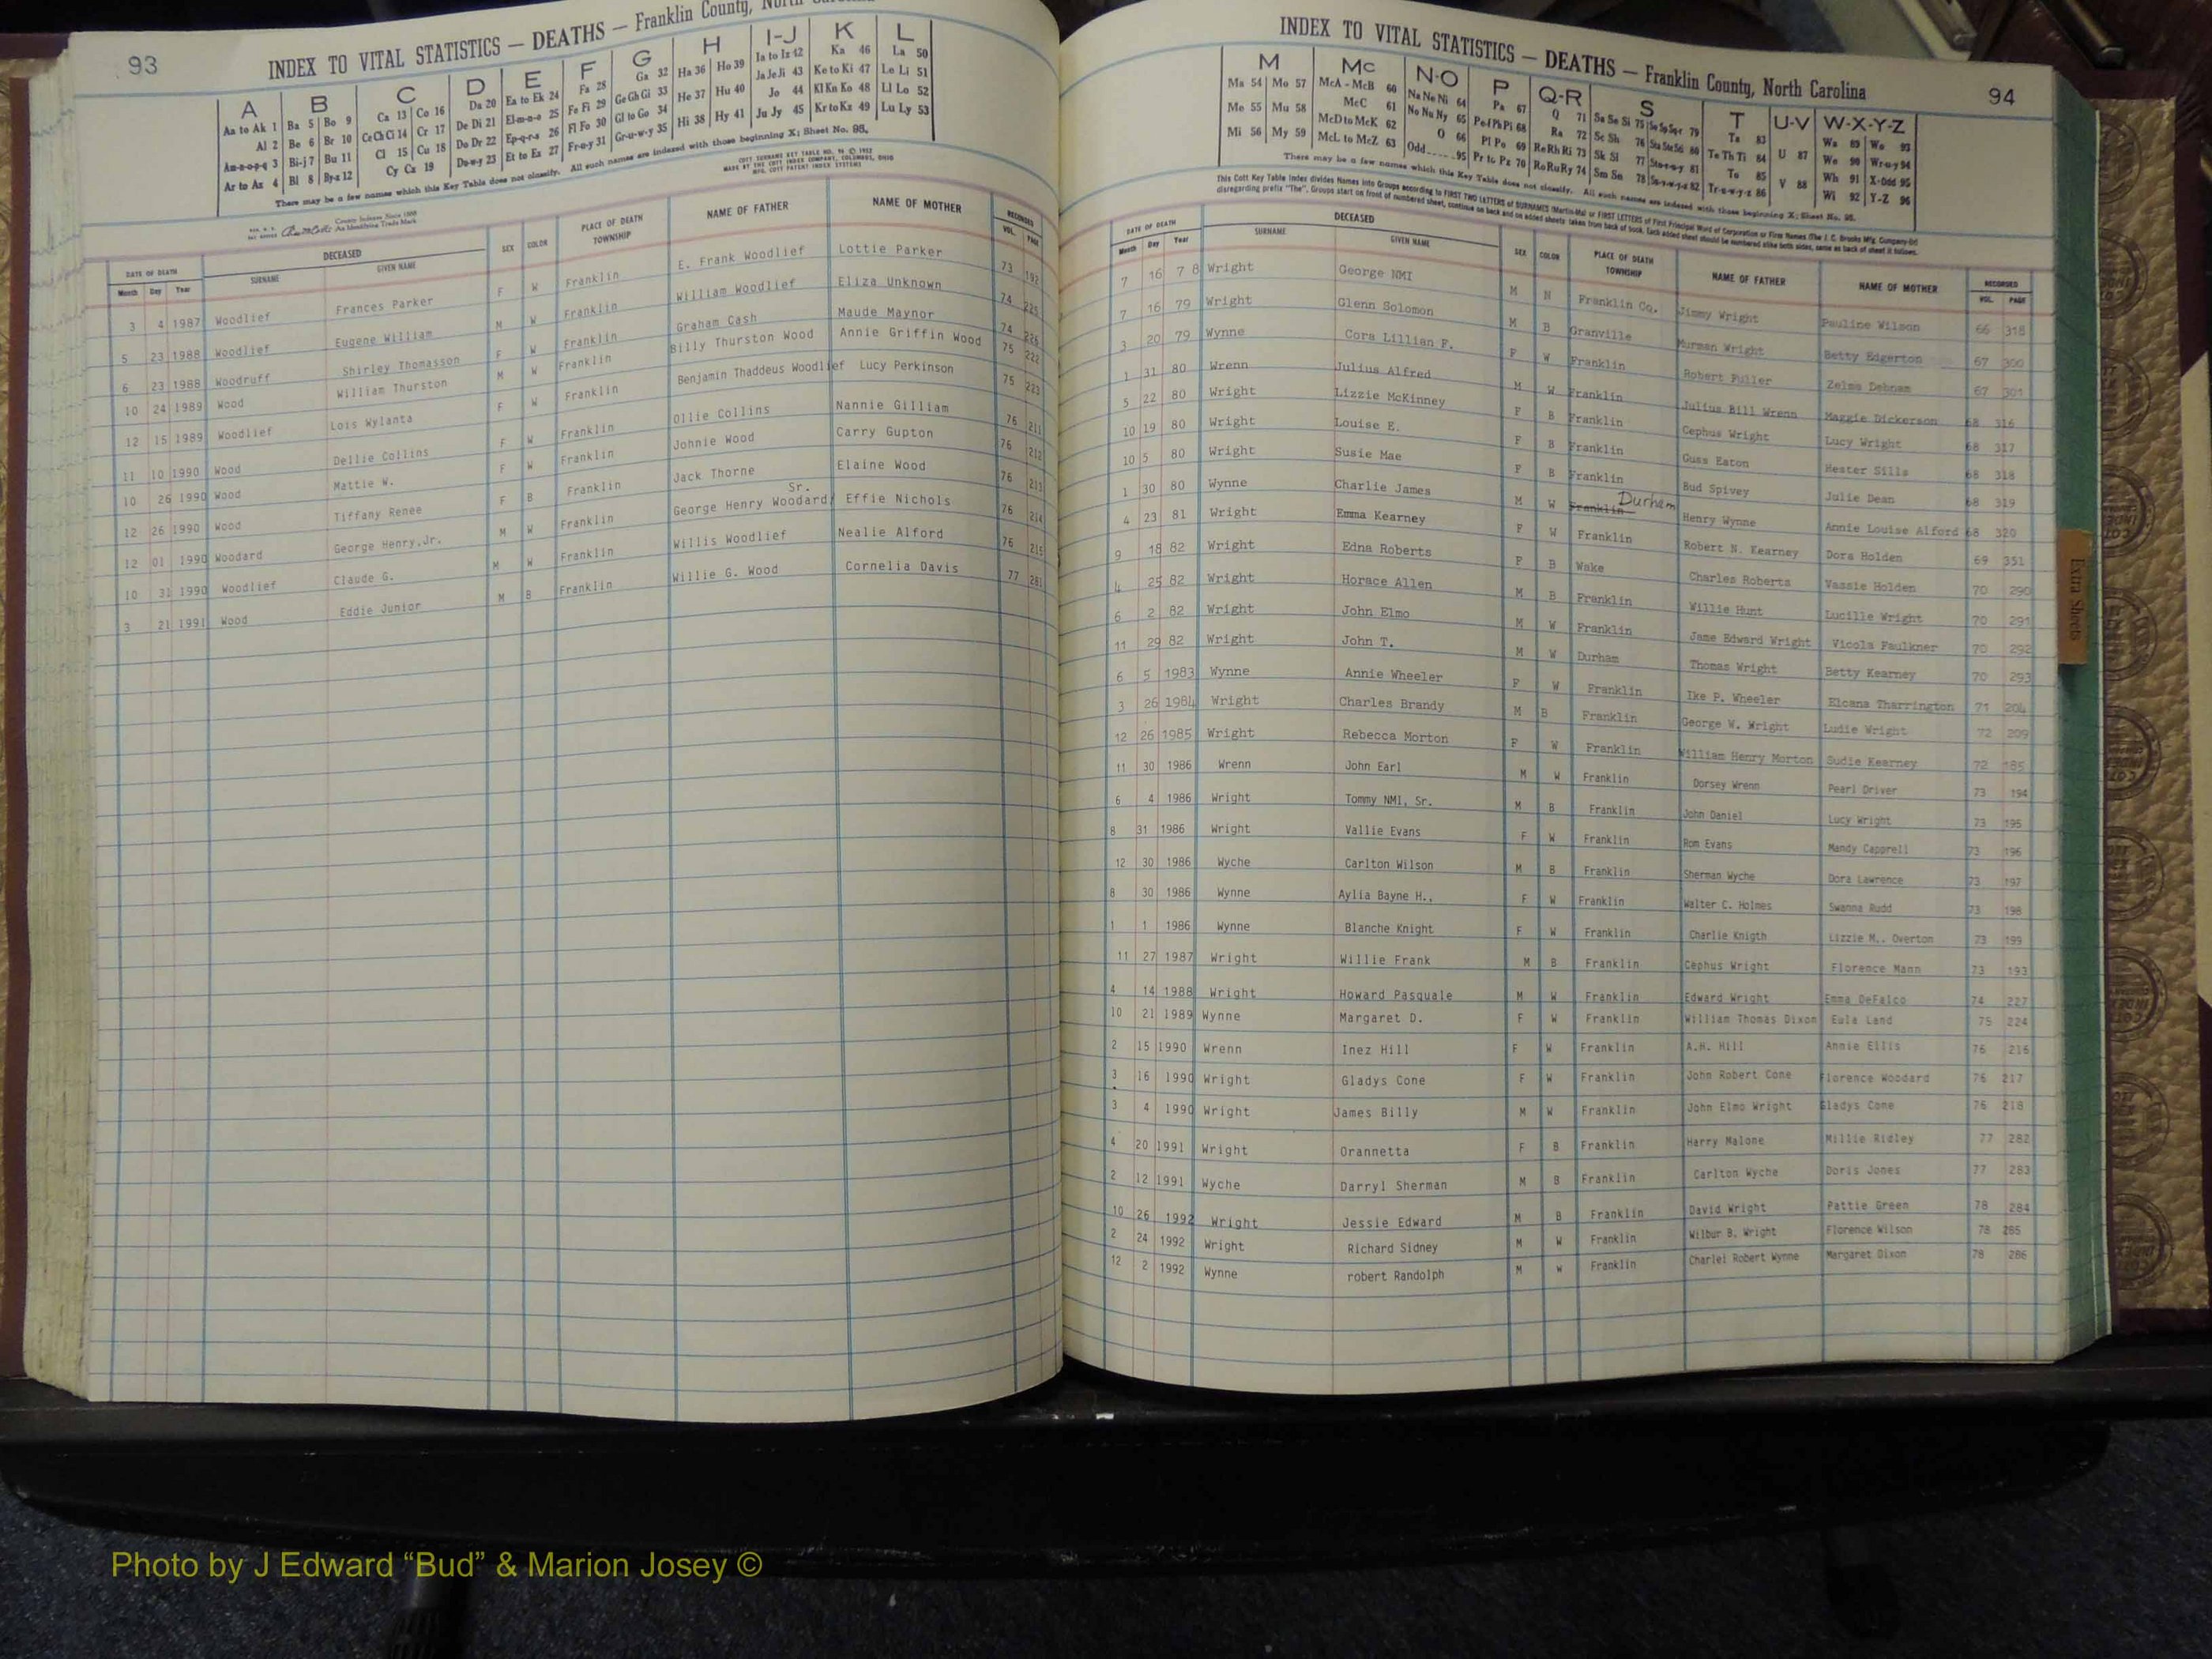 93
INDEX TO VITAL STATISTICS — DEATHS — Franklin County, North Carolina
A B C D E F G H I-J K L
Aa to Ak 1 Ba 5 Bo 9 Ca 13 Co 16 Da 20 Ea to Ek 24 Fa 28 Ga 32 Ha 36 Ho 39 Ia to Iz 42 Ka 46 La 50
Al 2 Be 6 Br 10 Ce Ch Ci 14 Cr 17 De Di 21 El-m-n-o 25 Fe Fi 29 Ge Gh Gi 33 He 37 Hu 40 Ja Je Ji 43 Ke to Ki 47 Le Li 51
Am-n-o-p-q 3 Bi-j 7 Bu 11 Cl 15 Cu 18 Do Dr 22 Ep-q-r-s 26 Fl Fo 30 Gl to Go 34 Hi 38 Hy 41 Jo 44 Kl Kn Ko 48 Ll Lo 52
Ar to Az 4 Bl 8 By-z 12 Cy Cz 19 Du-w-y 23 Et to Ez 27 Fr-u-y 31 Gr-u-w-y 35 Ju Jy 45 Kr to Kz 49 Lu Ly 53
There may be a few names which this Key Table does not classify. All such names are indexed with those beginning X; Sheet No. 95.
COTT SURNAME KEY TABLE NO. 96 © 1952
MADE BY THE COTT INDEX COMPANY, COLUMBUS, OHIO
MFG. COTT PATENT INDEX SYSTEMS
County Indexes Since 1888
An Identifying Trade Mark
DATE OF DEATH DECEASED SEX COLOR PLACE OF DEATH TOWNSHIP NAME OF FATHER NAME OF MOTHER RECORDED
Month Day Year SURNAME GIVEN NAME VOL. PAGE
3 4 1987 Woodlief Frances Parker F W Franklin E. Frank Woodlief Lottie Parker 73 192
5 23 1988 Woodlief Eugene William M W Franklin William Woodlief Eliza Unknown 74 225
6 23 1988 Woodruff Shirley Thomasson F W Franklin Graham Cash Maude Maynor 74 226
10 24 1989 Wood William Thurston M W Franklin Billy Thurston Wood Annie Griffin Wood 75 222
12 15 1989 Woodlief Lois Wylanta F W Franklin Benjamin Thaddeus Woodlief Lucy Perkinson 75 223
11 10 1990 Wood Dellie Collins F W Franklin Ollie Collins Nannie Gilliam 76 211
10 26 1990 Wood Mattie W. F W Franklin Johnie Wood Carry Gupton 76 212
12 26 1990 Wood Tiffany Renee F B Franklin Jack Thorne Elaine Wood 76 213
12 01 1990 Woodard George Henry,Jr. M W Franklin George Henry Woodard/ Sr. Effie Nichols 76 214
10 31 1990 Woodlief Claude G. M W Franklin Willis Woodlief Nealie Alford 76 215
3 21 1991 Wood Eddie Junior M B Franklin Willie G. Wood Cornelia Davis 77 281
INDEX TO VITAL STATISTICS — DEATHS — Franklin County, North Carolina
94
M Mc N-O P Q-R S T U-V W-X-Y-Z
Ma 54 Mo 57 McA - McB 60 Na Ne Ni 64 Pa 67 Q 71 Sa Se Si 75 So Sp Sq-r 79 Ta 83 Wa 89 Wo 93
Me 55 Mu 58 McC 61 No Nu Ny 65 Pe-f Ph Pi 68 Ra 72 Sc Sh 76 Sta Ste Sti 80 Te Th Ti 84 U 87 We 90 Wr-u-y 94
Mi 56 My 59 McD to McK 62 O 66 Pl Po 69 Re Rh Ri 73 Sk Sl 77 Sto-r-u-y 81 To 85 V 88 Wh 91 X-Odd 95
McL to McZ 63 Odd 95 Pr to Pz 70 Ro Ru Ry 74 Sm Sn 78 Su-v-w-y-z 82 Tr-u-w-y-z 86 Wi 92 Y-Z 96
There may be a few names which this Key Table does not classify. All such names are indexed with those beginning X; Sheet No. 95.
This Cott Key Table Index divides Names into Groups according to FIRST TWO LETTERS of SURNAMES (Martin-Ma) or FIRST LETTERS of First Principal Word of Corporation or Firm Names (The J. C. Brooks Mfg. Company-Br)
disregarding prefix "The". Groups start on front of numbered sheet, continue on back and on added sheets taken from back of book. Each added sheet should be numbered alike both sides, same as back of sheet it follows.
DATE OF DEATH DECEASED SEX COLOR PLACE OF DEATH TOWNSHIP NAME OF FATHER NAME OF MOTHER RECORDED
Month Day Year SURNAME GIVEN NAME VOL. PAGE
7 16 7 8 Wright George NMI M N Franklin Co. Jimmy Wright Pauline Wilson 66 318
7 16 79 Wright Glenn Solomon M B Granville Murman Wright Betty Edgerton 67 300
3 20 79 Wynne Cora Lillian F. F W Franklin Robert Fuller Zelma Debnam 67 301
1 31 80 Wrenn Julius Alfred M W Franklin Julius Bill Wrenn Maggie Dickerson 68 316
5 22 80 Wright Lizzie McKinney F B Franklin Cephus Wright Lucy Wright 68 317
10 19 80 Wright Louise E. F B Franklin Guss Eaton Hester Sills 68 318
10 5 80 Wright Susie Mae F B Franklin Bud Spivey Julie Dean 68 319
1 30 80 Wynne Charlie James M W Franklin Durham Henry Wynne Annie Louise Alford 68 320
4 23 81 Wright Emma Kearney F W Franklin Robert N. Kearney Dora Holden 69 351
9 18 82 Wright Edna Roberts F B Wake Charles Roberts Vassie Holden 70 290
4 25 82 Wright Horace Allen M B Franklin Willie Hunt Lucille Wright 70 291
6 2 82 Wright John Elmo M W Franklin Jame Edward Wright Vicola Faulkner 70 292
11 29 82 Wright John T. M W Durham Thomas Wright Betty Kearney 70 293
6 5 1983 Wynne Annie Wheeler F W Franklin Ike P. Wheeler Elcana Tharrington 71 204
3 26 1984 Wright Charles Brandy M B Franklin George W. Wright Ludie Wright 72 209
12 26 1985 Wright Rebecca Morton F W Franklin William Henry Morton Sudie Kearney 72 185
11 30 1986 Wrenn John Earl M W Franklin Dorsey Wrenn Pearl Driver 73 194
6 4 1986 Wright Tommy NMI, Sr. M B Franklin John Daniel Lucy Wright 73 195
8 31 1986 Wright Vallie Evans F W Franklin Rom Evans Mandy Capprell 73 196
12 30 1986 Wyche Carlton Wilson M B Franklin Sherman Wyche Dora Lawrence 73 197
8 30 1986 Wynne Aylia Bayne H., F W Franklin Walter C. Holmes Swanna Rudd 73 198
1 1 1986 Wynne Blanche Knight F W Franklin Charlie Knigth Lizzie M.. Overton 73 199
11 27 1987 Wright Willie Frank M B Franklin Cephus Wright Florence Mann 73 193
4 14 1988 Wright Howard Pasquale M W Franklin Edward Wright Emma DeFalco 74 227
10 21 1989 Wynne Margaret D. F W Franklin William Thomas Dixon Eula Land 75 224
2 15 1990 Wrenn Inez Hill F W Franklin A.H. Hill Annie Ellis 76 216
3 16 1990 Wright Gladys Cone F W Franklin John Robert Cone Florence Woodard 76 217
3 4 1990 Wright James Billy M W Franklin John Elmo Wright Gladys Cone 76 218
4 20 1991 Wright Orannetta F B Franklin Harry Malone Millie Ridley 77 282
2 12 1991 Wyche Darryl Sherman M B Franklin Carlton Wyche Doris Jones 77 283
10 26 1992 Wright Jessie Edward M B Franklin David Wright Pattie Green 78 284
2 24 1992 Wright Richard Sidney M W Franklin Wilbur B. Wright Florence Wilson 78 285
12 2 1992 Wynne robert Randolph M W Franklin Charlei Robert Wynne Margaret Dixon 78 286
Extra Sheets
Photo by J Edward “Bud” & Marion Josey ©